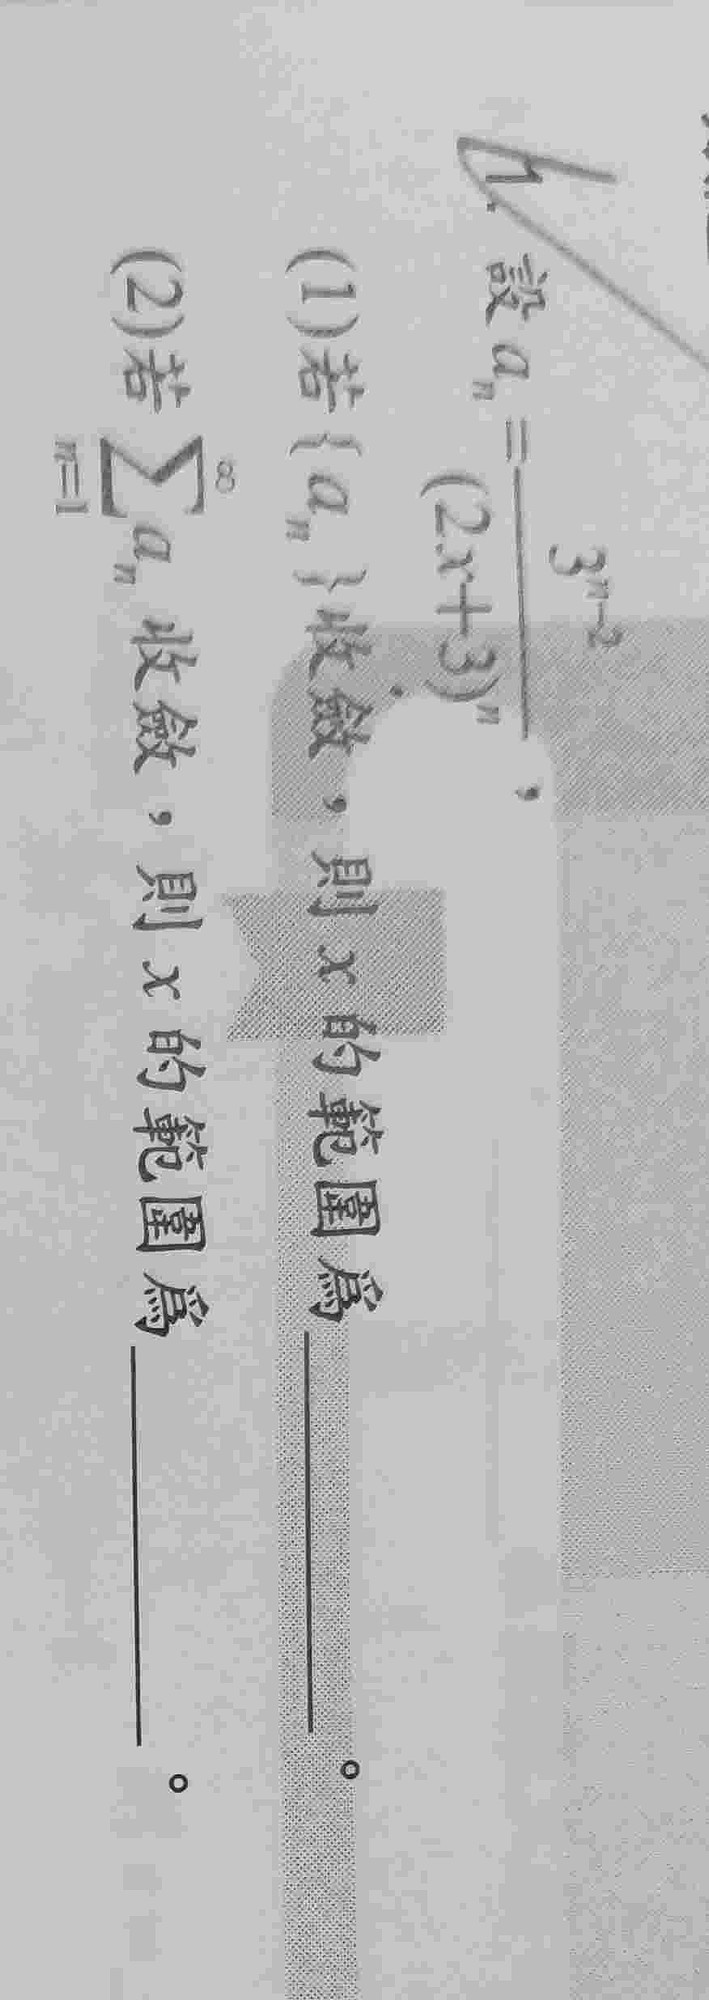 1. 設 aₙ = 3ⁿ⁻² / (2x+3)ⁿ ,
(1)若{aₙ}收斂，則 x 的範圍為＿＿＿＿。
(2)若 ∑_{n=1}^{∞} aₙ 收斂，則 x 的範圍為＿＿＿＿。